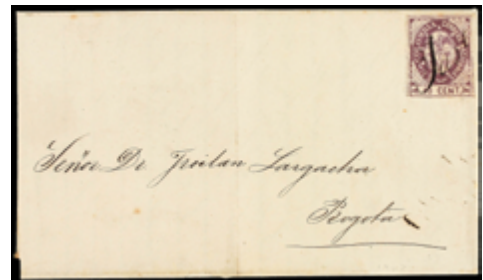 CENT
Señor Dr Froilan Largacha
Bogota